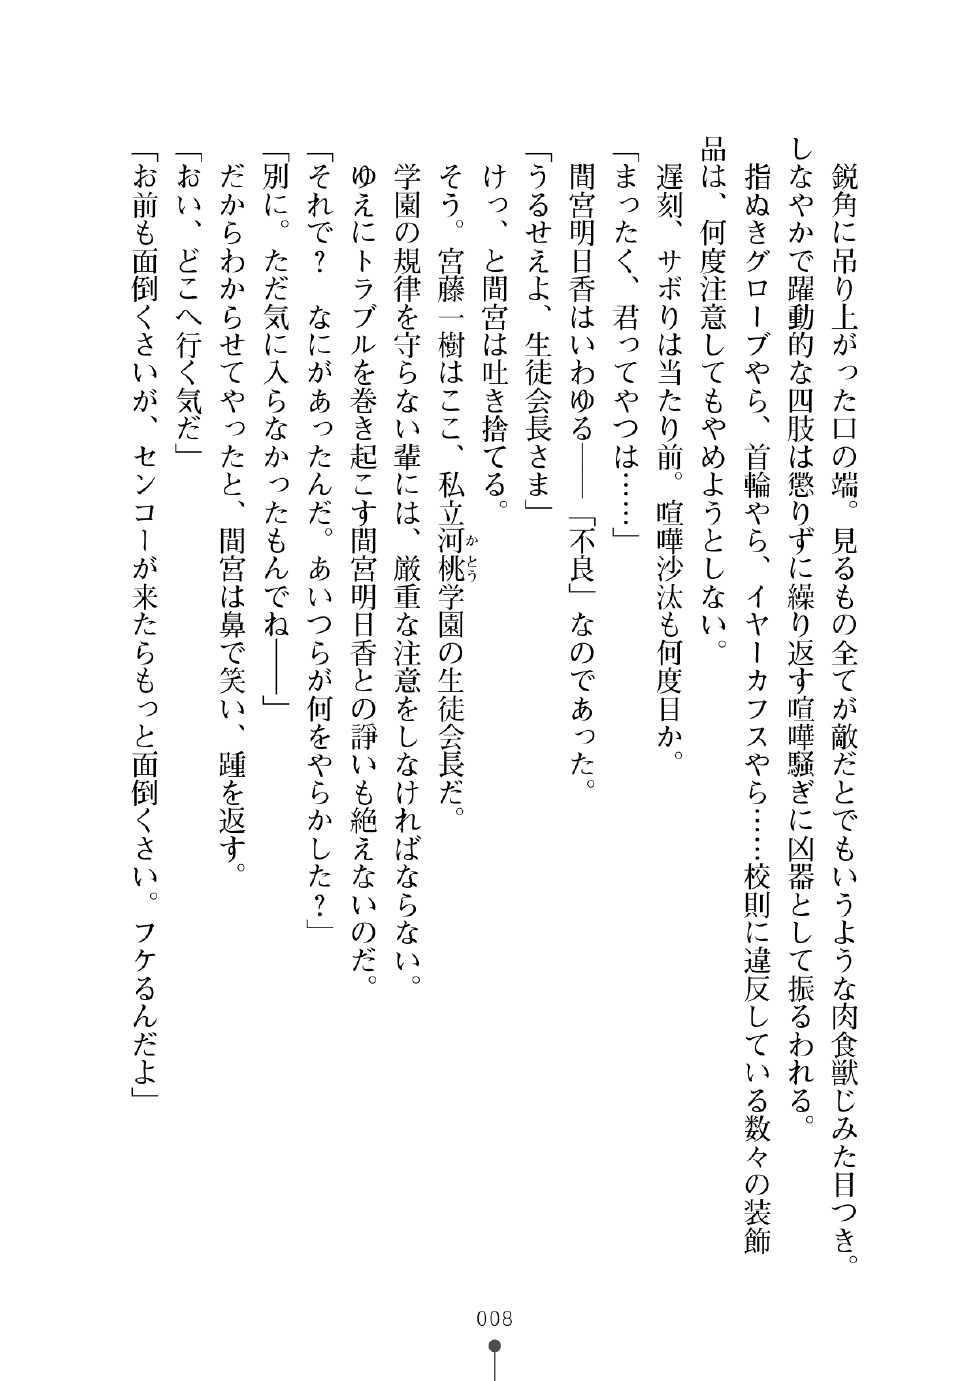 鋭角に吊り上がった口の端。見るもの全てが敵だとでもいうような肉食獣じみた目つき。
しなやかで躍動的な四肢は懲りずに繰り返す喧嘩騒ぎに凶器として振るわれる。
指ぬきグローブやら、首輪やら、イヤーカフスやら……校則に違反している数々の装飾
品は、何度注意してもやめようとしない。
遅刻、サボりは当たり前。喧嘩沙汰も何度目か。
「まったく、君ってやつは……」
間宮明日香はいわゆる――「不良」なのであった。
「うるせえよ、生徒会長さま」
けっ、と間宮は吐き捨てる。
そう。宮藤一樹はここ、私立河桃学園の生徒会長だ。
かとう
学園の規律を守らない輩には、厳重な注意をしなければならない。
ゆえにトラブルを巻き起こす間宮明日香との諍いも絶えないのだ。
「それで？　なにがあったんだ。あいつらが何をやらかした？」
「別に。ただ気に入らなかったもんでね――」
だからわからせてやったと、間宮は鼻で笑い、踵を返す。
「おい、どこへ行く気だ」
「お前も面倒くさいが、センコーが来たらもっと面倒くさい。フケるんだよ」
008